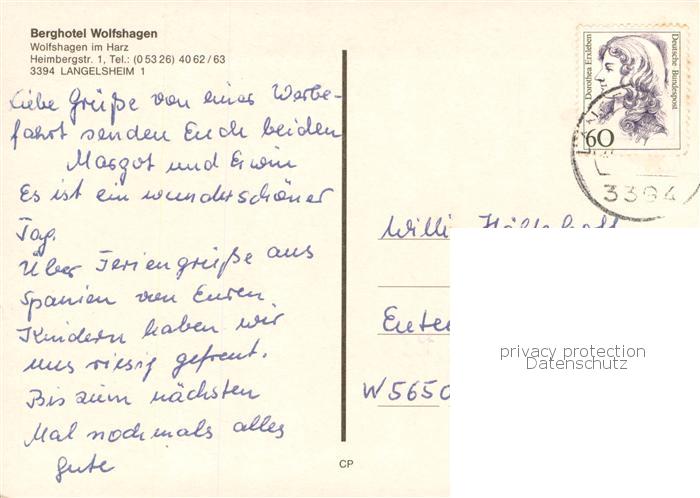 Berghotel Wolfshagen
Wolfshagen im Harz
Heimbergstr. 1, Tel.: (0 53 26) 40 62 / 63
3394 LANGELSHEIM 1
Liebe Grüße von einer Werbe-
fahrt senden Euch beiden
Margot und Erwin
Es ist ein wunderschöner
Tag.
Über Feriengrüße aus
Spanien von Euren
Kindern haben wir
uns riesig gefreut.
Bis zum nächsten
Mal nochmals alles
gute
CP
Dorothea Erxleben
Deutsche Bundespost
60
3394
Willi
W 5650
privacy protection
Datenschutz